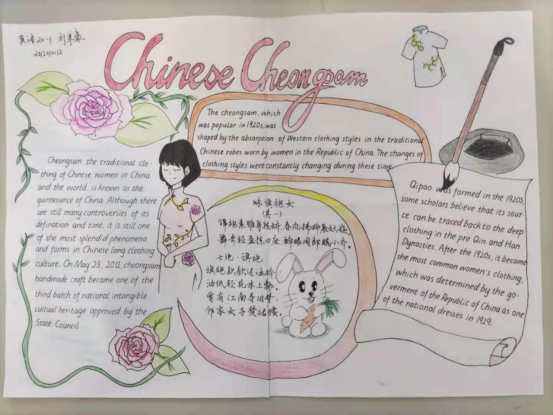 英语20-1
Chinese Cheongsam
The cheongsam, which
was popular in 1920s, was
shaped by the absorption of Western clothing styles in the traditional
Chinese robes worn by women in the Republic of China. The changes of
clothing styles were constantly changing during these time.
Cheongsam, the traditional clo-
thing of Chinese women in China
and the world, is known as the
quintisence of China. Although there
are still many controversies of its
defination and time, it is still one
of the most splendid phenomena
and forms in Chinese long clothing
culture. On May 23, 2011, cheongsam
handmade craft became one of the
third batch of national intangible
cultural heritage approved by the
State Council.
咏旗袍女
(其一)
七绝·旗袍
Qipao was formed in the 1920s
some scholars believe that its sour
ce can be traced back to the deep
clothing in the pre Qin and Han
Dynasties. After the 1920s, it became
the most common women's clothing,
which was determined by the go-
verment of the Republic of China as one
of the national dresses in 1929.